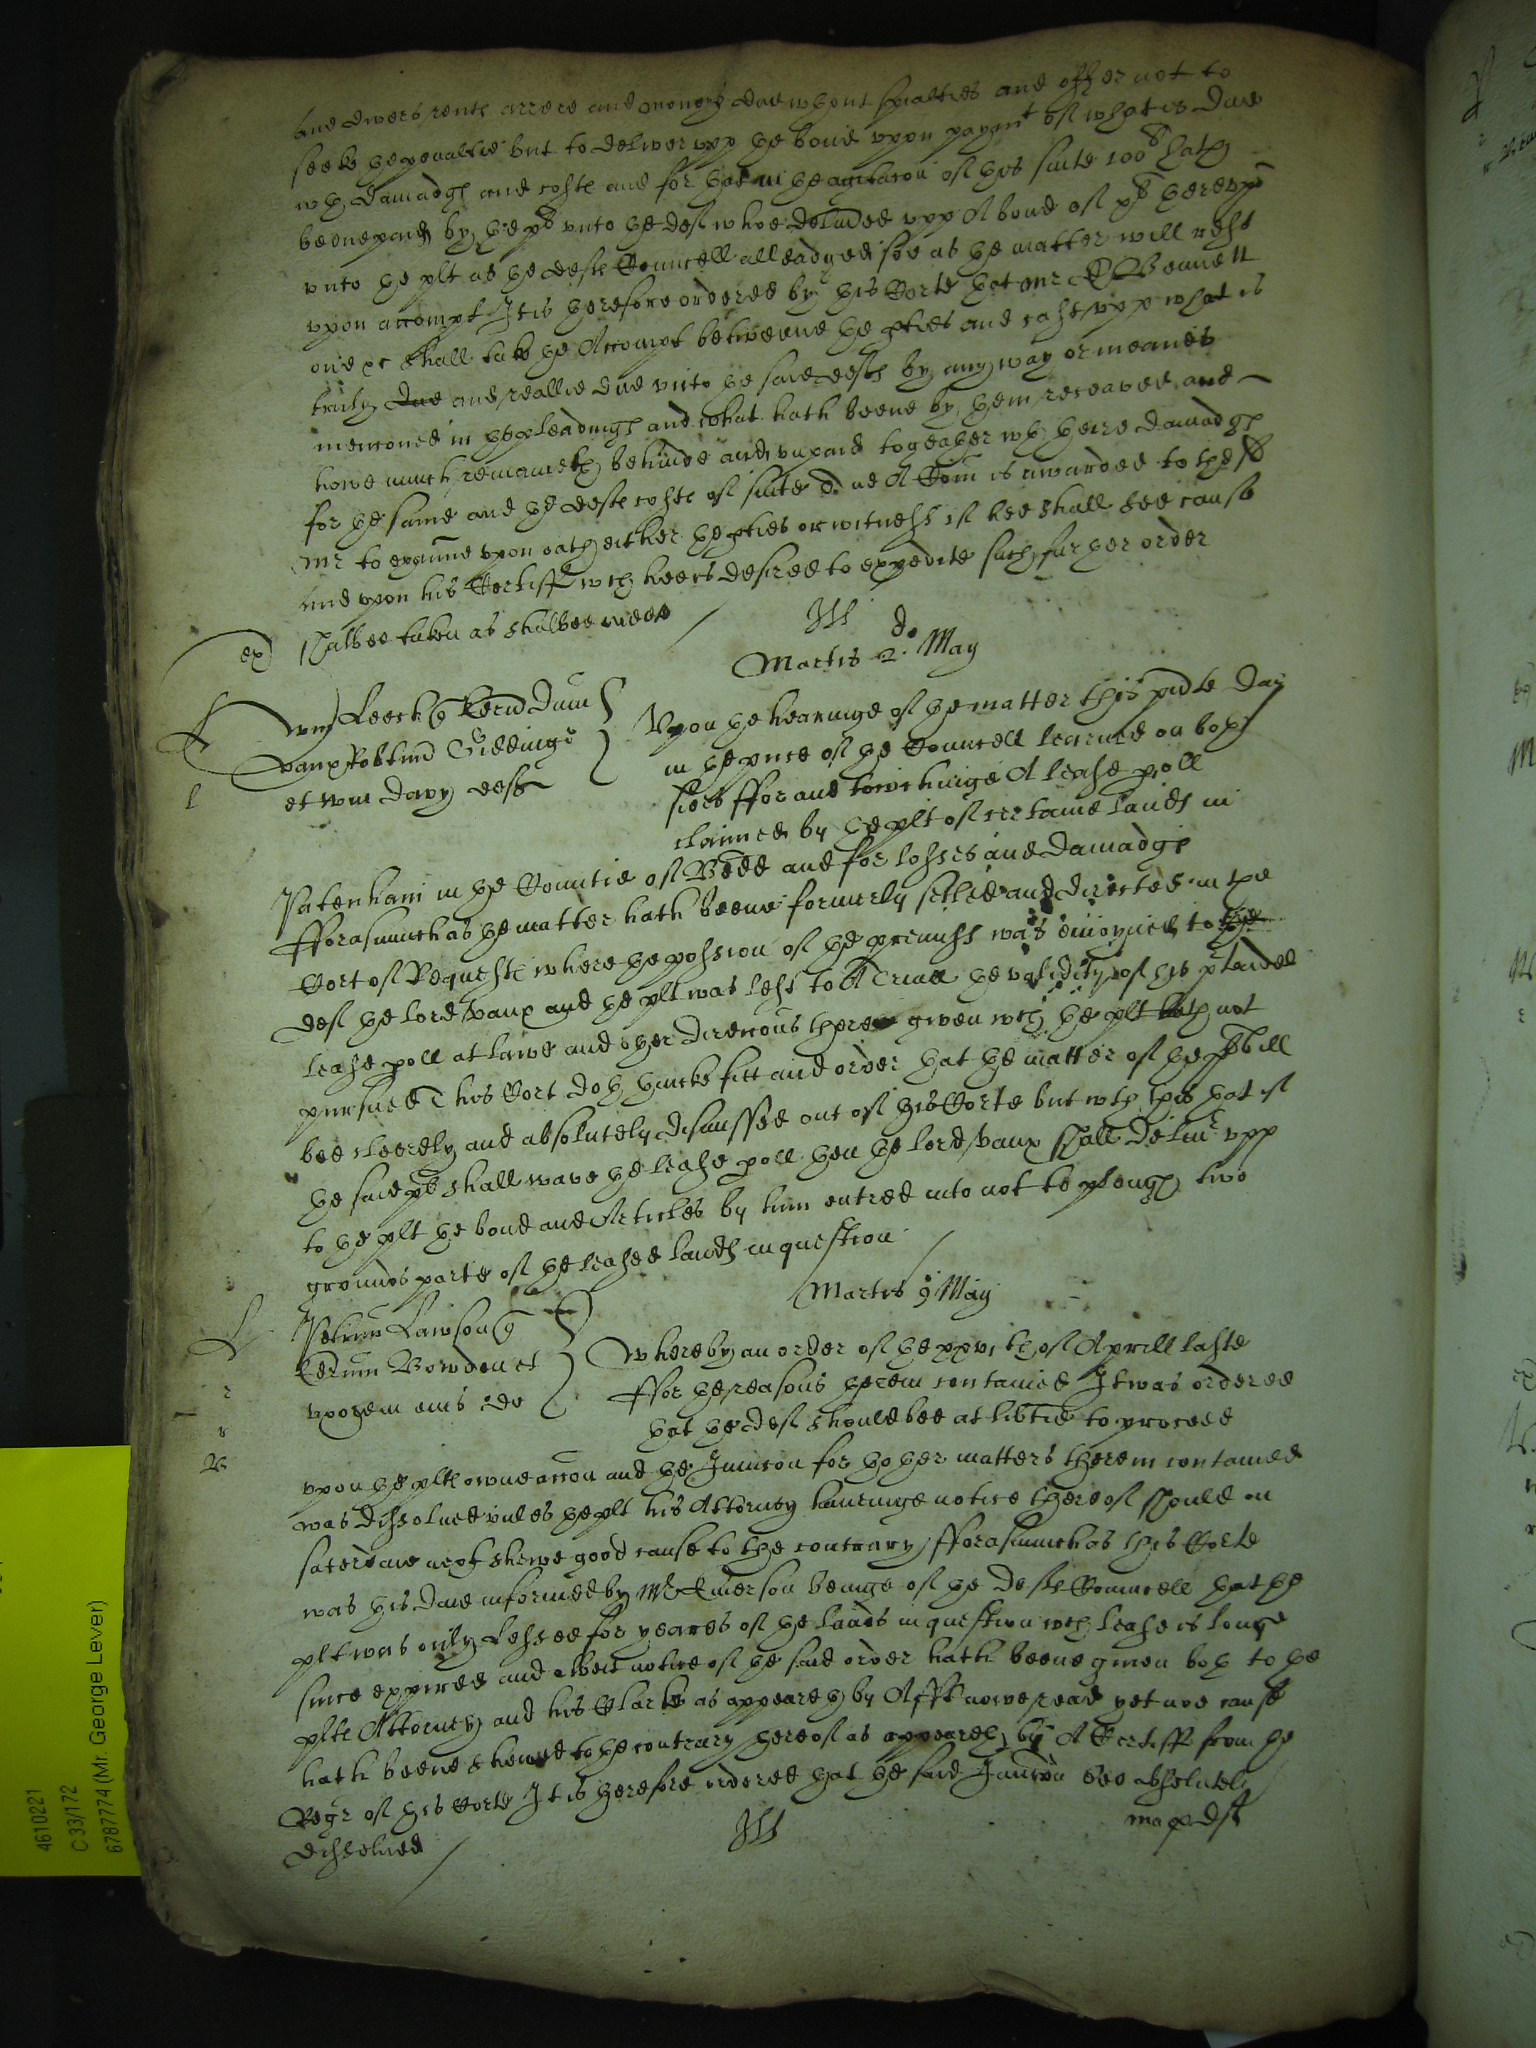 and divers rents arrere and moneys due wthout spialties and offer not to
seeke the penaltie but to deliver upp the bond upon paymt of what is due
wth damadgs and costs and for that in the agitacon of this suite 100li hath
beene paid by the pl unto the deft whoe delivered upp A bond of
unto the plt as the defts Councell alleadged soe as the matter will rest
upon accompt It is therefore ordered by this Corte that Mr D Bennett
one &c shall take the Accompt betweene the pties and cast upp what is
truly due and reallie due unto the said defts by any way or meanes
mencioned in the pleadings and what hath beene by them receaved and
howe much remaineth behinde and unpaid togeather wth theire damadgs
for the same and the defts costs of suite And A Com is awarded to the sd
Mr to exaime upon oath either the pties or witness if hee shall see cause
And upon his Certiff wch hee is desired to expedite such further order
shalbee taken as shalbee meete
ex)
Martis 2do May
Leech q Kerid Dum
vaux Robtum Giddings
et Wm Davy defts
Upon the hearinge of the matter this pnte Day
in the pnce of the Councell learned on both
sides ffor and towchinge A lease poll
claimed by the plt of certaine lands in
Patenham in the Countie of Bedd and for losses and damadgs
fforasmuch as the matter hath beene formerly setled and directed in the
Cort of Requests where the possion of the premisss was enioyned to the
deft the lord Vaux and the plt was left to A Triall the validity of his ptended
lease poll at lawe and other direcons there given wch the plt hath not
pursued This Cort doth thincke fitt and order that the matter of the pl bill
bee cleerely and absolutely dismissed out of this Corte but wth this that if
the said pl shall wave the lease poll then the lord Vaux shall deliur upp
to the plt the bond and Articles by him entred into not to plough two
grounds parte of the leased lands in question
Martis 9 May
Petrum Lawson q
Kerum Bowden et
uxorem eius def
Whereby an order of the xxvith of Aprill laste
ffor the reasons therein contained It was ordered
that the deft should bee at libtie to proceed
upon the plts owne accon and the Iniuncon for thother matters therein contained
was dissolued unles the plt his Attorney haueinge notice thereof should on
saterdaie next shewe good cause to the contrary fforasmuch as this Corte
was this daie informed by Mr Emerson beinge of the defts Councell that the
plt was only Lessee for yeares of the lands in question wch lease is longe
since expired and albeit notice of the said order hath beene given both to the
plts Attorney and his Clarke as appeareth by Afft nowe read yet noe cause
hath beene shewed to the contrary thereof as appeareth by A Certiff from the
Regr of this Corte It is therefore ordered that the said Iniuncon bee absolutely
dissolued
4610221
C 33/172
6787774 (Mr. George Lever)